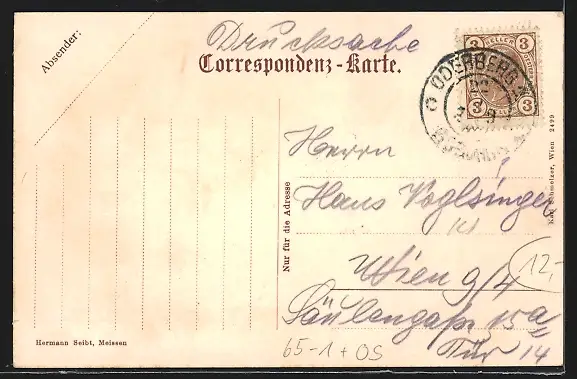 Absender:
Drucksache
Correspondenz-Karte.
3 HELLER 3
3 3
ODERBERG
Herrn
Hans Voglsinger
Wien 9/4
Säulengaße 15a
Tür 14
Nur für die Adresse
Karl Schmelzer, Wien 2499
12,-
65-1+OS
Hermann Seibt, Meissen